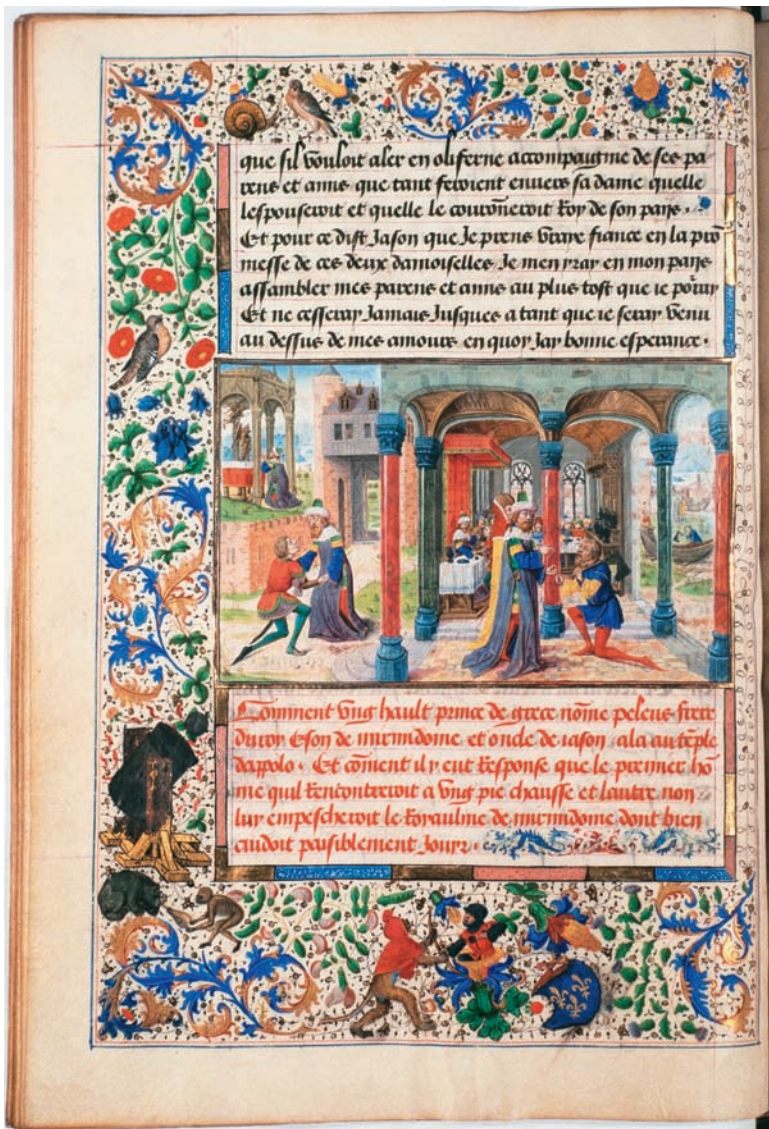 que sil vouloit aler en oliferne accompaignie de ses pa
rens et amis que tant feroient envers sa dame quelle
lespouseroit et quelle le couronneroit Roy de son pays .
Et pour ce dist Jason que Je prens vraye fiance en la pro
messe de ces deux damoiselles Je men yray en mon pays
assambler mes parens et amis au plus tost que ie porray
Et ne cesseray Jamais Jusques a tant que ie seray venu
au dessus de mes amours en quoy Jay bonne esperance .
Comment ung hault prince de grece nōme peleus frere
du roy Eson de mirmidome et oncle de iason ala au tēple
dappolo . Et cōment il y eut Response que le premier hō
me quil Rencontreroit a ung pie chausse et lautre non
luy empescheroit le Royaulme de mirmidome dont bien
cuidoit paisiblement Jouyr .